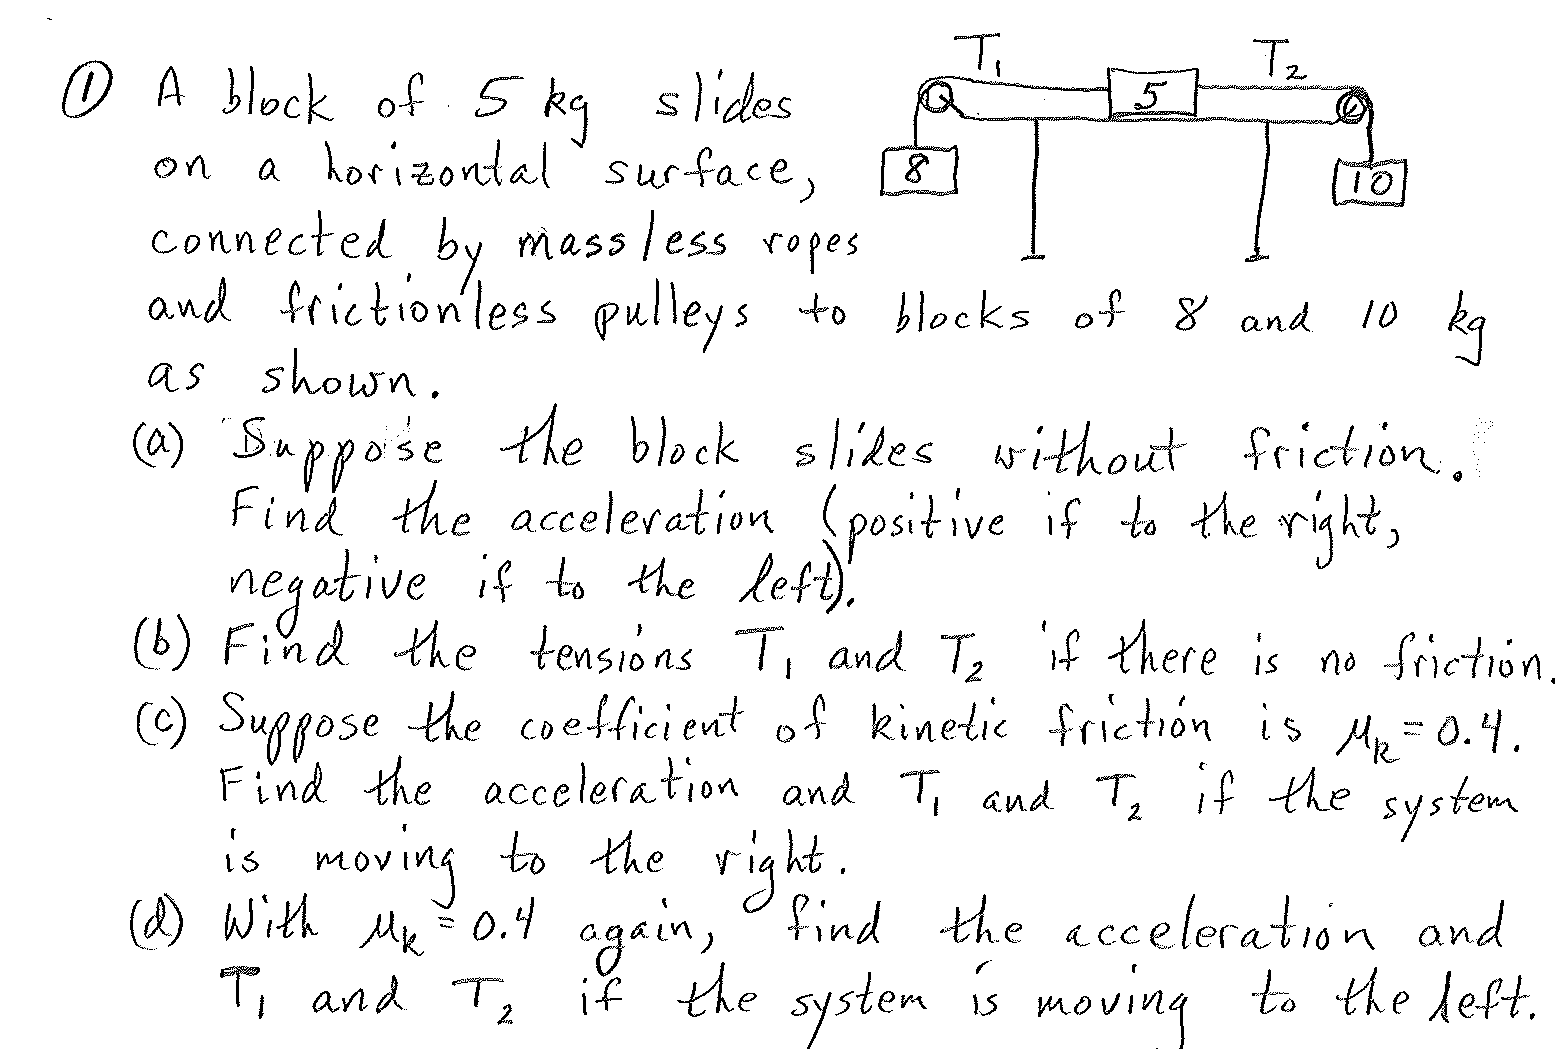 T₁ T₂
① A block of 5 kg slides
5
on a horizontal surface,
8 10
connected by massless ropes
and frictionless pulleys to blocks of 8 and 10 kg
as shown.
(a) Suppose the block slides without friction.
Find the acceleration (positive if to the right,
negative if to the left).
(b) Find the tensions T₁ and T₂ if there is no friction.
(c) Suppose the coefficient of kinetic friction is μₖ = 0.4.
Find the acceleration and T₁ and T₂ if the system
is moving to the right.
(d) With μₖ = 0.4 again, find the acceleration and
T₁ and T₂ if the system is moving to the left.